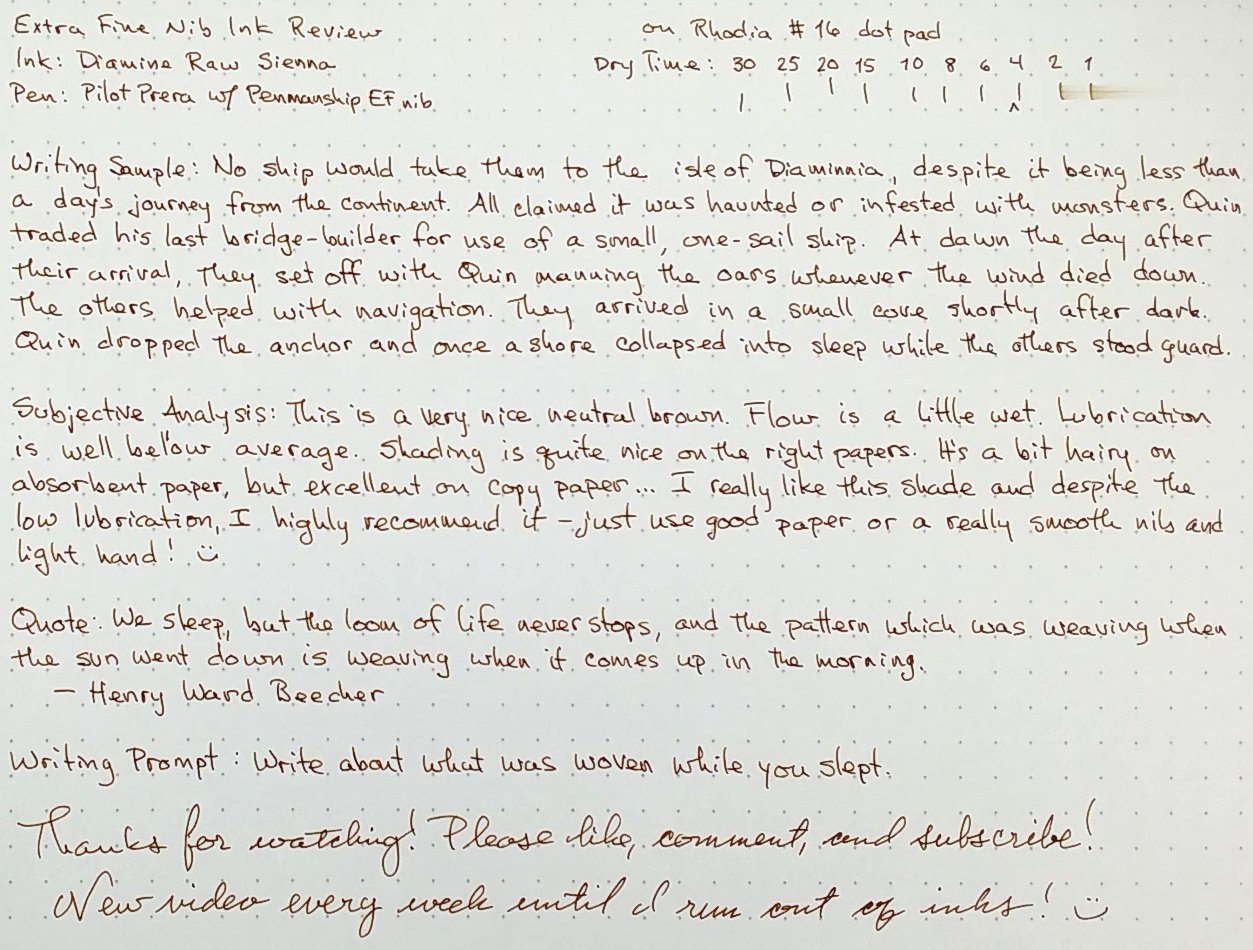 Extra Fine Nib Ink Review
on Rhodia #16 dot pad
Ink: Diamine Raw Sienna
Dry Time: 30 25 20 15 10 8 6 4 2 1
Pen: Pilot Prera w/ Penmanship EF nib
Writing Sample: No ship would take them to the isle of Diaminnia, despite it being less than
a day's journey from the continent. All claimed it was haunted or infested with monsters. Quin
traded his last bridge-builder for use of a small, one-sail ship. At dawn the day after
their arrival, they set off with Quin manning the oars whenever the wind died down.
The others helped with navigation. They arrived in a small cove shortly after dark.
Quin dropped the anchor and once a shore collapsed into sleep while the others stood guard.
Subjective Analysis: This is a very nice neutral brown. Flow is a little wet. Lubrication
is well below average. Shading is quite nice on the right papers. It's a bit hairy on
absorbent paper, but excellent on copy paper... I really like this shade and despite the
low lubrication, I highly recommend it - just use good paper or a really smooth nib and
light hand! :)
Quote: We sleep, but the loom of life never stops, and the pattern which was weaving when
the sun went down is weaving when it comes up in the morning.
— Henry Ward Beecher
Writing Prompt: Write about what was woven while you slept.
Thanks for watching! Please like, comment, and subscribe!
New video every week until I run out of inks! :)